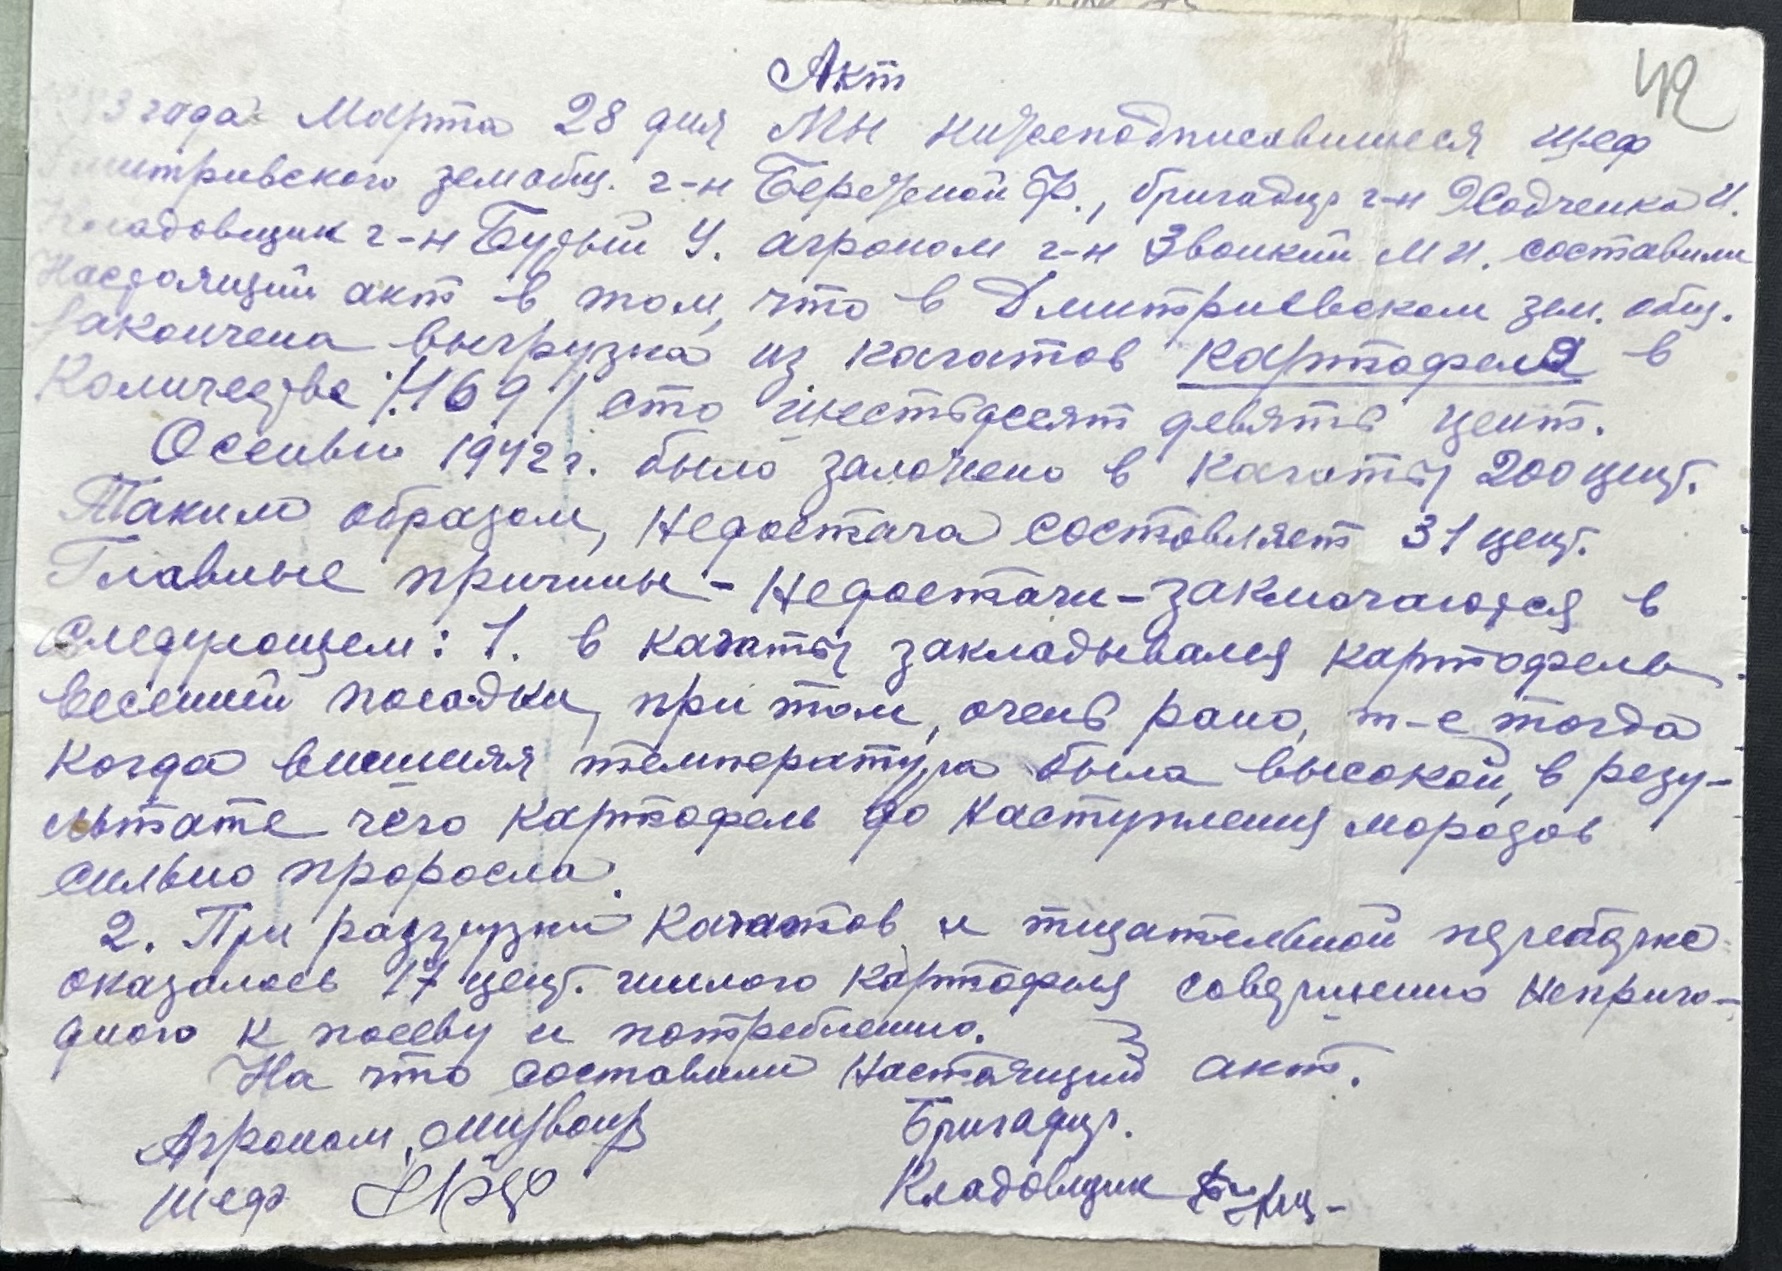 Акт
42
1943 года Марта 28 дня Мы нижеподписавшиеся шеф
Дмитривского земобщ. г-н Бережной Ф., бригадир г-н Ходченко И.
Кладовщик г-н Будый У. агроном г-н Звонкий М И. составили
Настоящий акт в том, что в Дмитриевском зем. общ.
закончена выгрузка из кагатов картофеля в
Количестве /169/ сто шестьдесят девять цент.
Осенью 1942 г. было заложено в кагаты 200 цнт.
Таким образом, недостача составляет 31 цент.
Главные причины - недостачи - заключаются в
следующем: 1. в кагаты закладывался картофель
весенний посадки, при том, очень рано, т-е тогда
когда внешняя температура была высокой, в резу-
льтате чего картофель до наступления морозов
сильно проросла.
2. При разгрузки кагатов и тщательной переборке
оказалось 17 цент. гнилого картофеля совершенно неприго-
дного к посеву и потреблению.
На что составили настоящий акт.
Агроном Бригадир.
Шеф Кладовщик